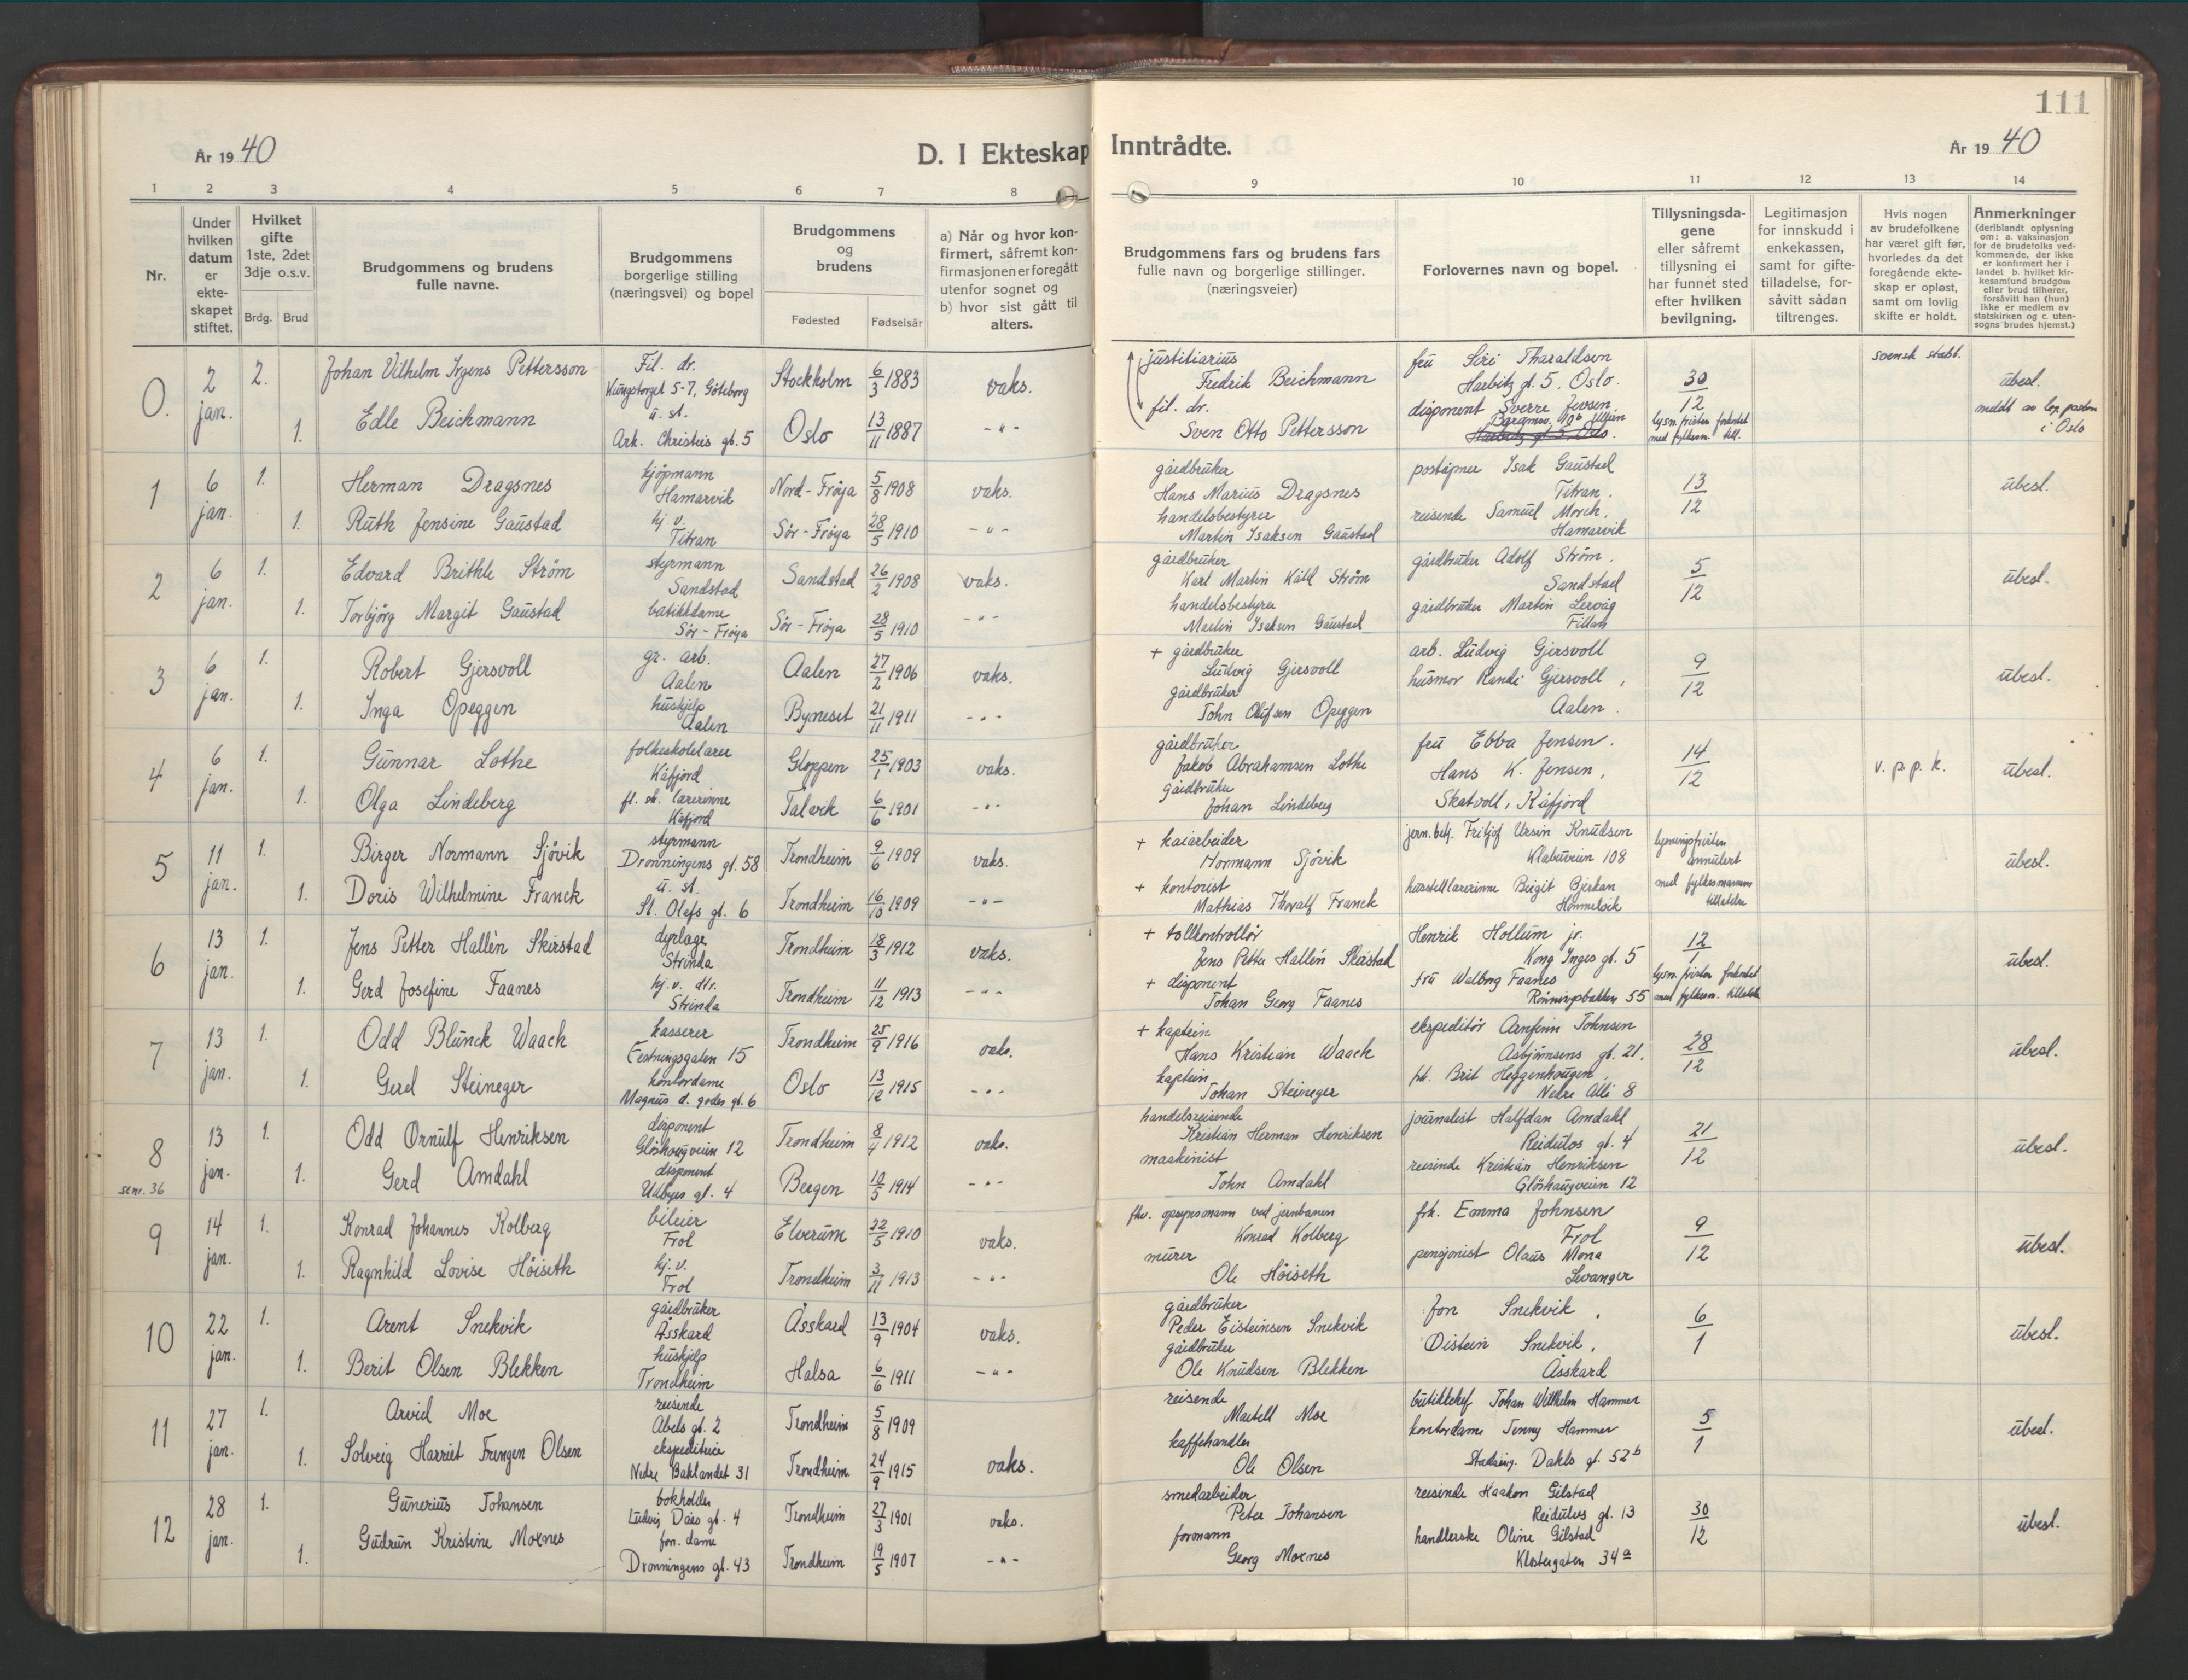 111
År 1940
D. I Ekteskap Inntrådte.
År 1940
1 2 3 4 5 6 7 8 9 10 11 12 13 14
Nr.
Under hvilken datum er ekteskapet stiftet.
Hvilket gifte 1ste, 2det 3dje o.s.v.
Brdg. Brud
Brudgommens og brudens fulle navne.
Brudgommens borgerlige stilling (næringsvei) og bopel
Brudgommens og brudens
Fødested Fødselsår
a) Når og hvor konfirmert, såfremt konfirmasjonen er foregått utenfor sognet og b) hvor sist gått til alters.
Brudgommens fars og brudens fars fulle navn og borgerlige stillinger. (næringsveier)
Forlovernes navn og bopel.
Tillysningsdagene eller såfremt tillysning ei har funnet sted efter hvilken bevilgning.
Legitimasjon for innskudd i enkekassen, samt for giftetilladelse, forsåvitt sådan tiltrenges.
Hvis nogen av brudefolkene har været gift før, hvorledes da det foregående ekteskap er opløst, samt om lovlig skifte er holdt.
Anmerkninger (deriblandt oplysning om: a. vaksinasjon for de brudefolks vedkommende, der ikke er konfirmert her i landet b. hvilket kirkesamfund brudgom eller brud tilhører, forsåvitt han (hun) ikke er medlem av statskirken og c. utensogns brudes hjemst.)
0. 2 jan. 2. Johan Vilhelm Irgens Pettersson Fil. dr. Kungstorget 5-7, Göteborg Stockholm 6/3 1883 vaks. justitiarius Fredrik Beichmann frü Siri Tharaldsen Harbitz gt. 5, Oslo. 30/12 svensk statb. übesl.
1. Edle Beichmann u. st. Ark. Christies gt. 5 Oslo 13/11 1887 -"- fil. dr. Sven Otto Pettersson disponent Sverre Jensen Harbitz gt. 5. Oslo. lysn. fristen forkortet med fylkesm. till. meldt av i Oslo
1 6 jan. 1. Herman Dragsnes kjøpmann Hamarvik Nord-Frøya 5/8 1908 vaks. gårdbrüker Hans Marius Dragsnes poståpner Isak Gaustad Titran. 13/12 übesl.
1. Ruth Jensine Gaustad hj. v. Titran Sör-Fröya 28/5 1910 -"- handelsbestyrer Martin Isaksen Gaustad reisende Samuel Morch, Hamarvik
2 6 jan. 1. Edvard Brithle Ström styrmann Sandstad Sandstad 26/2 1908 vaks. gårdbrüker Karl Martin Ström gårdbrüker Adolf Ström. Sandstad 5/12 übesl.
1. Torbjörg Margit Gaustad butikkdame Sör-Fröya Sör-Fröya 28/5 1910 -"- handelsbestyrer Martin Isaksen Gaustad gårdbrüker Martin Lervåg Fillan
3 6 jan. 1. Robert Gjersvoll gr. arb. Aalen Aalen 27/2 1906 vaks. + gårdbrüker Ludvig Gjersvoll arb. Ludvig Gjersvoll 9/12 übesl.
1. Inga Opeggen hüshjelp Aalen Byneset 21/11 1911 -"- gårdbrüker John Olufsen Opeggen hüsmor Randi Gjersvoll, Aalen.
4 6 jan. 1. Gunnar Lothe folkeskolelærer Kåfjord Gloppen 25/1 1903 vaks. gårdbrüker Jakob Abrahamsen Lothe frü Ebba Jensen. 14/12 v. p. p. k. übesl.
1. Olga Lindeberg fl. sk. lærerinne Kåfjord Talvik 6/6 1901 -"- gårdbrüker Johan Lindeberg Hans K. Jensen, Skatvoll, Kåfjord
5 11 jan. 1. Birger Normann Sjövik styrmann Dronningens gt. 58 Trondheim 9/6 1909 vaks. + kaiarbeider Normann Sjövik jern.betj. Fritjof Ursin Knudsen Klæbuveien 108 lysningsfristen annulert med fylkesmannens tillatelse übesl.
1. Doris Wilhelmine Franck u. st. St. Olafs gt. 6 Trondheim 16/10 1909 -"- + kontorist Mathias Thoralf Franck husstellærerinne Birgit Bjerkan Hommelvik
6 13 jan. 1. Jens Petter Hallén Skirstad dyrlæge Strinda Trondheim 18/3 1912 vaks. + tollkontrollör Jens Petter Hallén Skirstad Henrik Hollum jr. Kong Inges gt. 5 12/1 übesl.
1. Gerd Josefine Faanes hj.v. dtr. Strinda Trondheim 11/12 1913 -"- + disponent Johan Georg Faanes frü Walborg Faanes Rönningsbakken 55 lysn. fristen forkortet med fylkesm. tillatelse
7 13 jan. 1. Odd Blunck Waack kasserer Festningsgaten 15 Trondheim 25/9 1916 vaks. + kaptein Hans Kristian Waack ekspeditör Arnfinn Johnsen Asbjörnsens gt. 21. 28/12 übesl.
1. Gerd Steineger kontordame Magnus d. godes gt. 6 Oslo 13/12 1915 -"- kaptein Johan Steineger frk. Brit Heggenhougen, Nedre Allé 8
8 sene. 36 13 jan. 1. Odd Ornulf Henriksen disponent Glöshaugveien 12 Trondheim 8/4 1912 vaks. handelsreisende Kristian Herman Henriksen journalist Halfdan Amdahl Reidulvs gt. 4 21/12 übesl.
1. Gerd Amdahl disponent Udbyes gt. 4 Bergen 10/5 1914 -"- maskinist John Amdahl reisende Kristian Henriksen Glöshaugveien 12
9 14 jan. 1. Konrad Johannes Kolberg bileier Frol Elverum 22/5 1910 vaks. fhv. opsynsmann ved jernbanen Konrad Kolberg frk. Emma Johnsen Frol 9/12 übesl.
1. Ragnhild Lovise Höiseth hj.v. Frol Trondheim 3/11 1913 -"- mürer Ole Höiseth pensjonist Olaus Mona Levanger
10 22 jan. 1. Arent Snekvik gårdbrüker Åsskard Åsskard 13/9 1904 vaks. gårdbrüker Peder Eisteinsen Snekvik Jon Snekvik, 6/1 übesl.
1. Berit Olsen Blekken hüshjelp Trondheim Halsa 6/6 1911 -"- gårdbrüker Ole Knudsen Blekken Oistein Snekvik, Åsskard
11 27 jan. 1. Arvid Moe reisende Abels gt. 2 Trondheim 5/8 1909 reisende Martell Moe butikksjef Johan Willhelm Hammer 5/1 übesl.
1. Solveig Harriet Frengen Olsen ekspeditrise Nedre Baklandet 31 Trondheim 24/9 1915 vaks. kaffehandler Ole Olsen kontordame Jenny Hammer Stadsing. Dahls gt. 52b
12 28 jan. 1. Gunerius Johansen bokholder Ludvig Daes gt. 4 Trondheim 27/3 1901 vaks. smedarbeider Peter Johansen reisende Haakon Gilstad Reidulvs gt. 13 30/12 übesl.
1. Gudrun Kristine Moxnes fon. dame Dronningens gt. 43 Trondheim 19/5 1907 -"- formann Georg Moxnes handlerske Oline Gilstad Klostergaten 34a